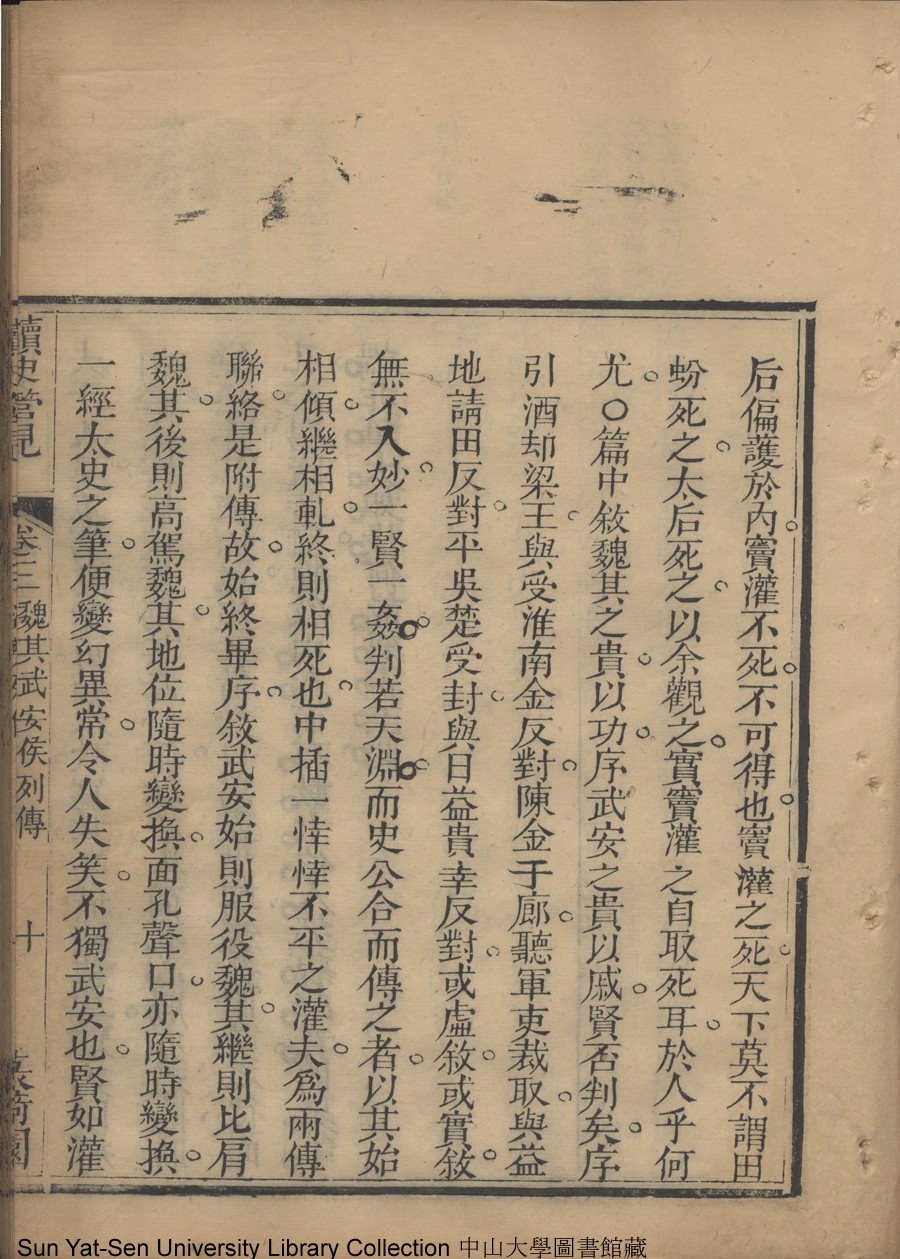 后偏護於內竇灌不死不可得也竇灌之死天下莫不謂田
蚡死之太后死之以余觀之實竇灌之自取死耳於人乎何
尤○篇中敘魏其之貴以功序武安之貴以戚賢否判矣序
引酒却梁王與受淮南金反對陳金于廊聽軍吏裁取與益
地請田反對平吳楚受封與日益貴幸反對或虛敘或實敘
無不入妙一賢一姦判若天淵而史公合而傳之者以其始
相傾繼相軋終則相死也中插一悻悻不平之灌夫爲兩傳
聯絡是附傳故始終畢序敘武安始則服役魏其繼則比肩
魏其後則高駕魏其地位隨時變換面孔聲口亦隨時變換
一經太史之筆便變幻異常令人失笑不獨武安也賢如灌
讀史管見 卷三 魏其武安侯列傳 十
Sun Yat-Sen University Library Collection 中山大學圖書館藏